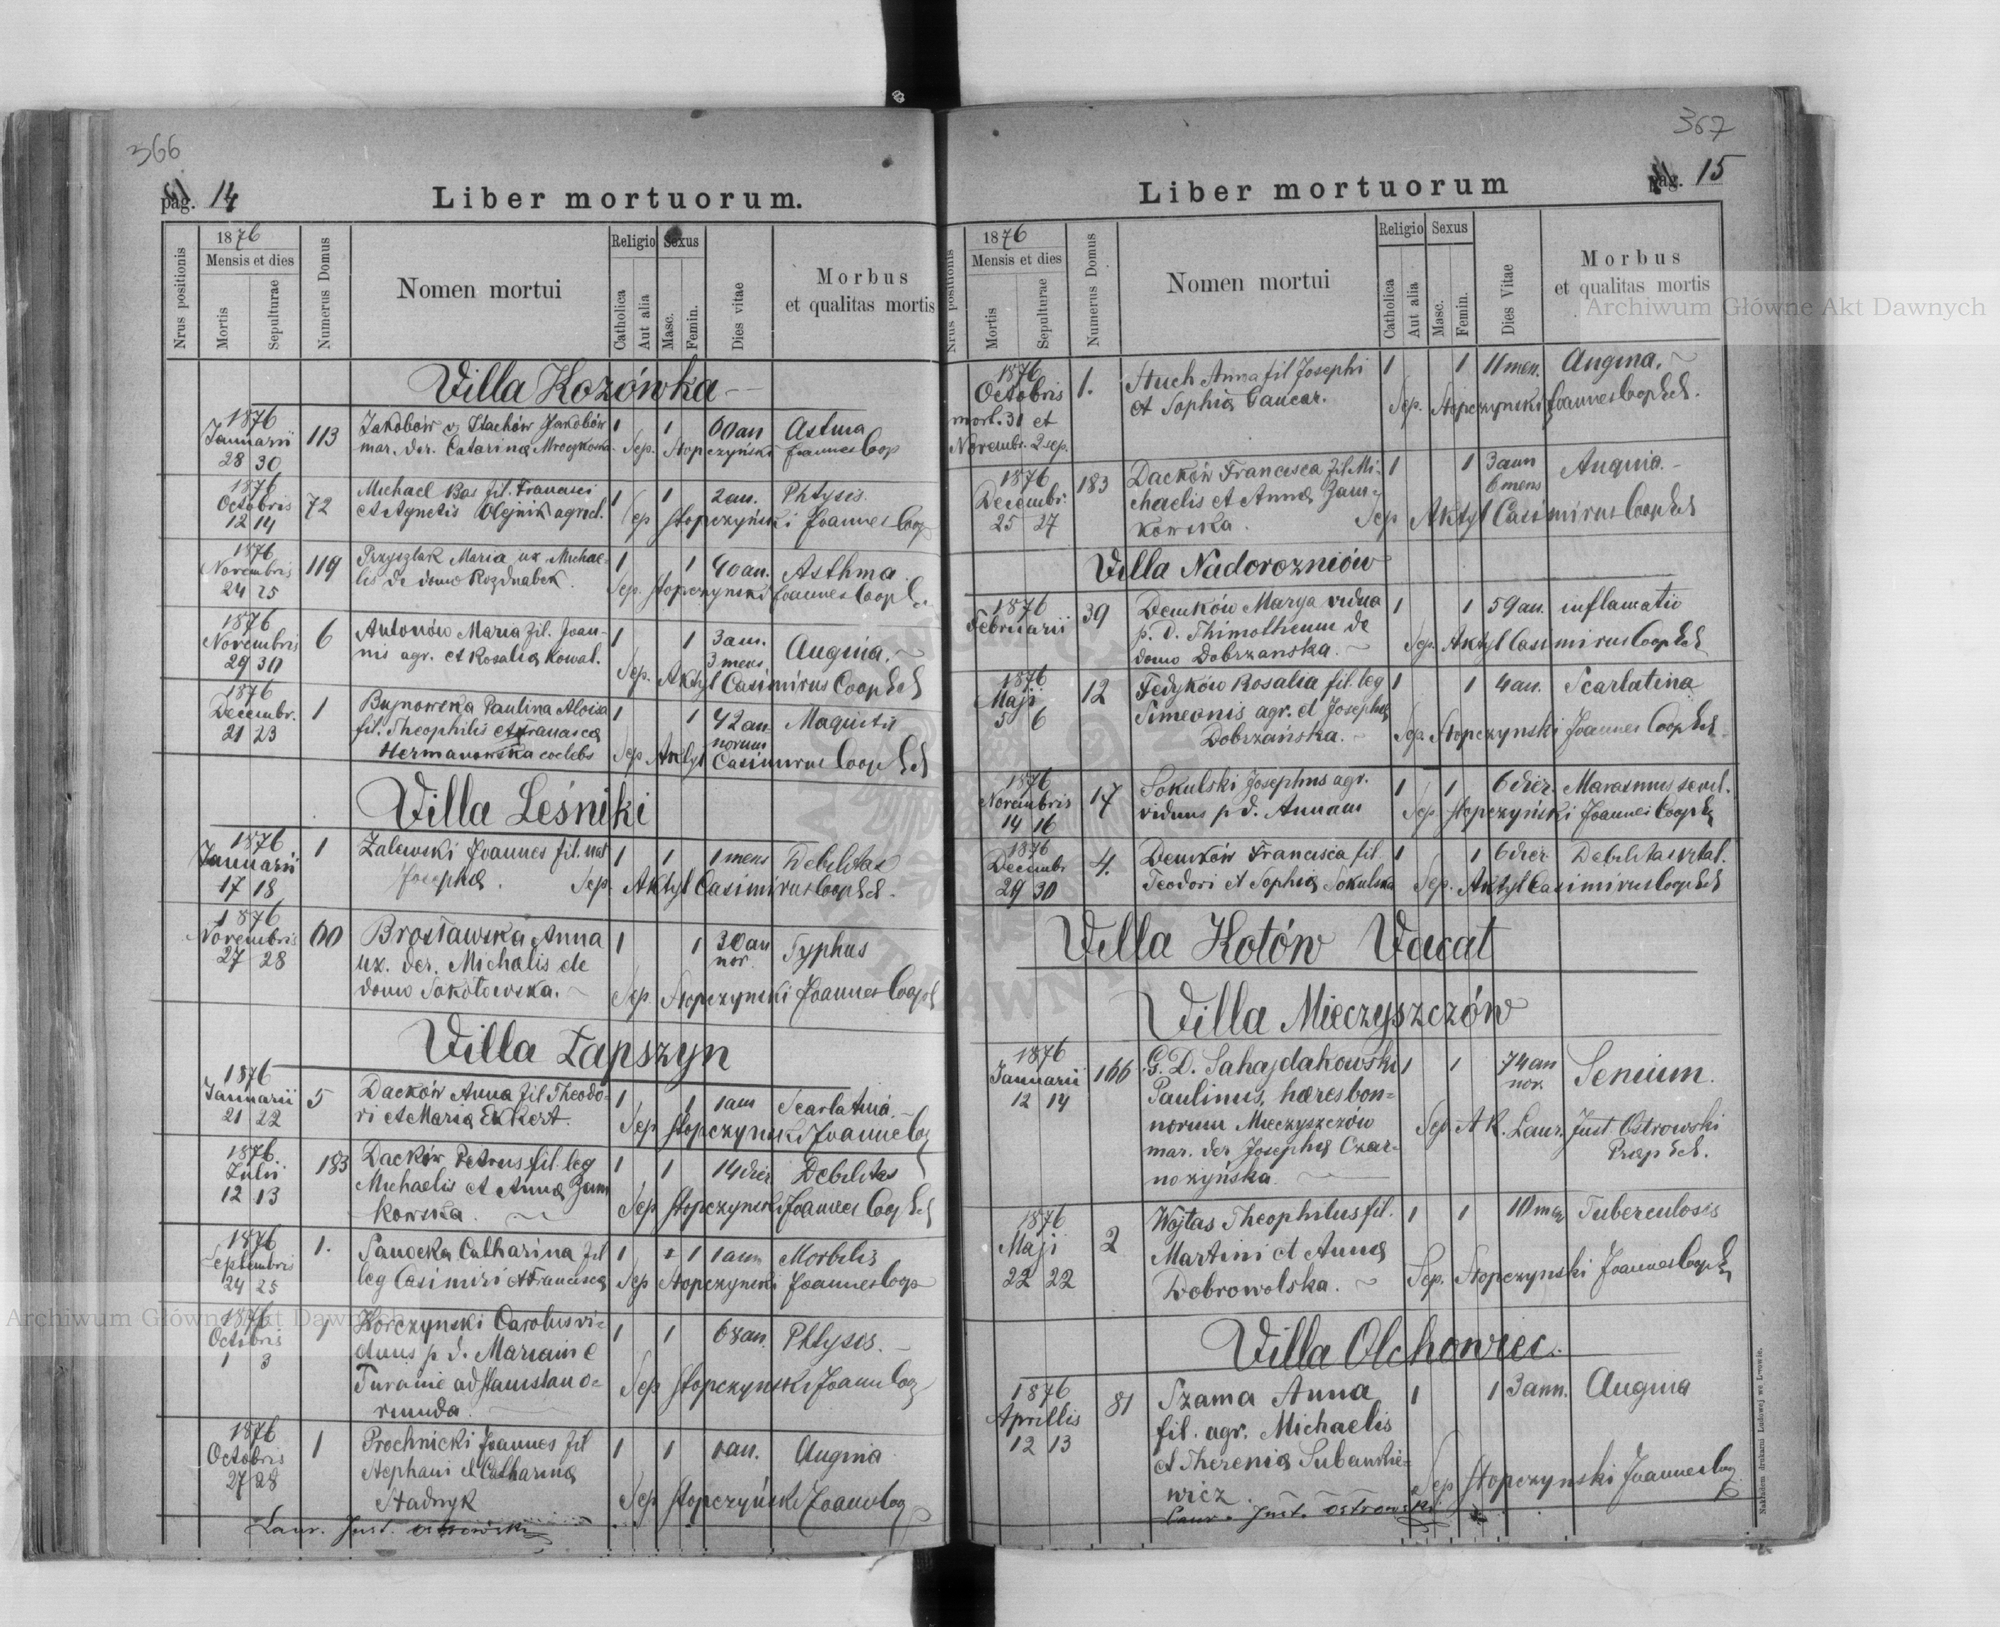 366
pag. 14
Liber mortuorum.
Nrus positionis
1876
Mensis et dies
Mortis
Sepulturae
Numerus Domus
Nomen mortui
Religio
Catholica
Aut alia
Sexus
Masc.
Femin.
Dies vitae
Morbus
et qualitas mortis
Villa Kozówka
1876
Januarii
28 30
113
Jakobów v. Stachów Jakobów
mar. der. Catarina
1 1 60 an Astma
Sep. Stopczyński Joannes Coop
1876
Octobris
12 14
72
Michael Bas fil. Francisci
et Agnetis Olejnik agricl.
1 1 2 an. Phtysis.
Sep Stopczyński Joannes Coop
1876
Novembris
24 25
119
Przysztak Maria ux. Michae-
lis de domo Rozdnabek.
1 1 40 an. Asthma
Sep. Stopczynski Joannes Coop
1876
Novembris
29 30
6
Antonów Maria fil. Joan-
nis agr. et Rosalia Kowal.
1 1 3 ann. 3 mens. Angina.
Sep. Aktyl Casimirus Coop Ecl
1876
Decembr.
21 23
1
Bujnowska Paulina Aloisa
fil. Theophilis et Francisca
Hermanowska coelebs
1 1 42 an
norum
Sep Aktyl Casimirus Coop Ecl
Villa Leśniki
1876
Januarii
17 18
1
Zalewski Joannes fil. nat
Josepha.
1 1 1 mens Debilitas
Sep. Aktyl Casimirus Coop Ecl.
1876
Novembris
27 28
60
Brosławska Anna
ux. der. Michalis de
domo Sokołowska.
1 1 30 an
nor. Typhus
Sep Stopczynski Joannes Coop
Villa Łapszyn
1876
Januarii
21 22
5
Daćków Anna fil Theodo-
ri et Maria Ekkert.
1 1 1 ann Scarlatina.
Sep Stopczynski Joannes Coop
1876
Julii
12 13
183
Daćków Petrus fil. leg
Michaelis et Anna Jam
kowska.
1 1 14 dier Debilitas
Sep Stopczynski Joannes Coop Ecl
1876
Septembris
24 25
1.
Sanocka Catharina fil
leg Casimiri et Francisca
1 1 1 ann Morbilis
Sep Stopczynski Joannes Coop
1876
Octobris
1 3
1
Korczynski Carolus vi-
duus p. d. Mariam e
Turanie ad Stanislau o-
riunda.
1 1 68 an. Phtysis.
Sep Stopczynski Joann Coop
1876
Octobris
27 28
1
Prochnicki Joannes fil
Stephani et Catharina
Stadnyk
1 1 1 an. Angina
Sep Stopczyński Joann Coop
Laur. Just. Ostrowski
367
pag. 15
Liber mortuorum
Nrus positionis
1876
Mensis et dies
Mortis
Sepulturae
Numerus Domus
Nomen mortui
Religio
Catholica
Aut alia
Sexus
Masc.
Femin.
Dies Vitae
Morbus
et qualitas mortis
1876
Octobris
mort. 31 et
Novembr. 2 sep.
1.
Stuch Anna fil Josephi
et Sophia Gancar.
1 1 11 men. Angina.
Sep. Stopczynski Joannes Coop Ecl.
1876
Decembr.
25 27
183
Daćków Francisca fil. Mi-
chaelis et Anna Jam-
kowska.
1 1 3 ann
6 mens Angina.
Sep Aktyl Casimirus Coop Ecl
Villa Nadorozniów
1876
Februarii
39
Demków Marya vidua
p. d. Thimotheum de
domo Dobrzanska.
1 1 59 an. inflamatio
Sep. Aktyl Casimirus Coop Ecl
1876
Maji
5 6
12
Fedyków Rosalia fil. leg
Simeonis agr. et Josepha
Dobrzańska.
1 1 4 an. Scarlatina
Sep. Stopczynski Joannes Coop Ecl
1876
Novembris
14 16
17
Sokulski Josephus agr.
viduus p. d. Annam
1 1 6 dier. Marasmus senil.
Sep Stopczyński Joannes Coop
1876
Decembr
29 30
4.
Demków Francisca fil
Teodori et Sophia Sokulska
1 1 6 dier. Debilitas vital.
Sep. Aktyl Casimirus Coop Ecl
Villa Kotów Vacat
Villa Mieczyszczów
1876
Januarii
12 14
166
G. D. Sahajdakowski
Paulinus, hæres bon-
norum Mieczyszczów
mar. der Josepha Czar-
nożyńska
1 1 74 an
nor. Senium.
Sep A R. Laur. Just Ostrowski
Præp Ecl.
1876
Maji
22 22
2
Wojtas Theophilus fil.
Martini et Anna
Dobrowolska.
1 1 10 men Tuberculosis
Sep. Stopczynski Joannes Coop
Villa Olchowiec.
1876
Aprillis
12 13
81
Szama Anna
fil. agr. Michaelis
et Therenia Subankie-
wicz.
1 1 3 ann. Angina
Sep Stopczynski Joannes Coop
Laur. Just. Ostrowski
Nakładem drukarni Ludowej we Lwowie.
Archiwum Główne Akt Dawnych
Archiwum Główne Akt Dawnych